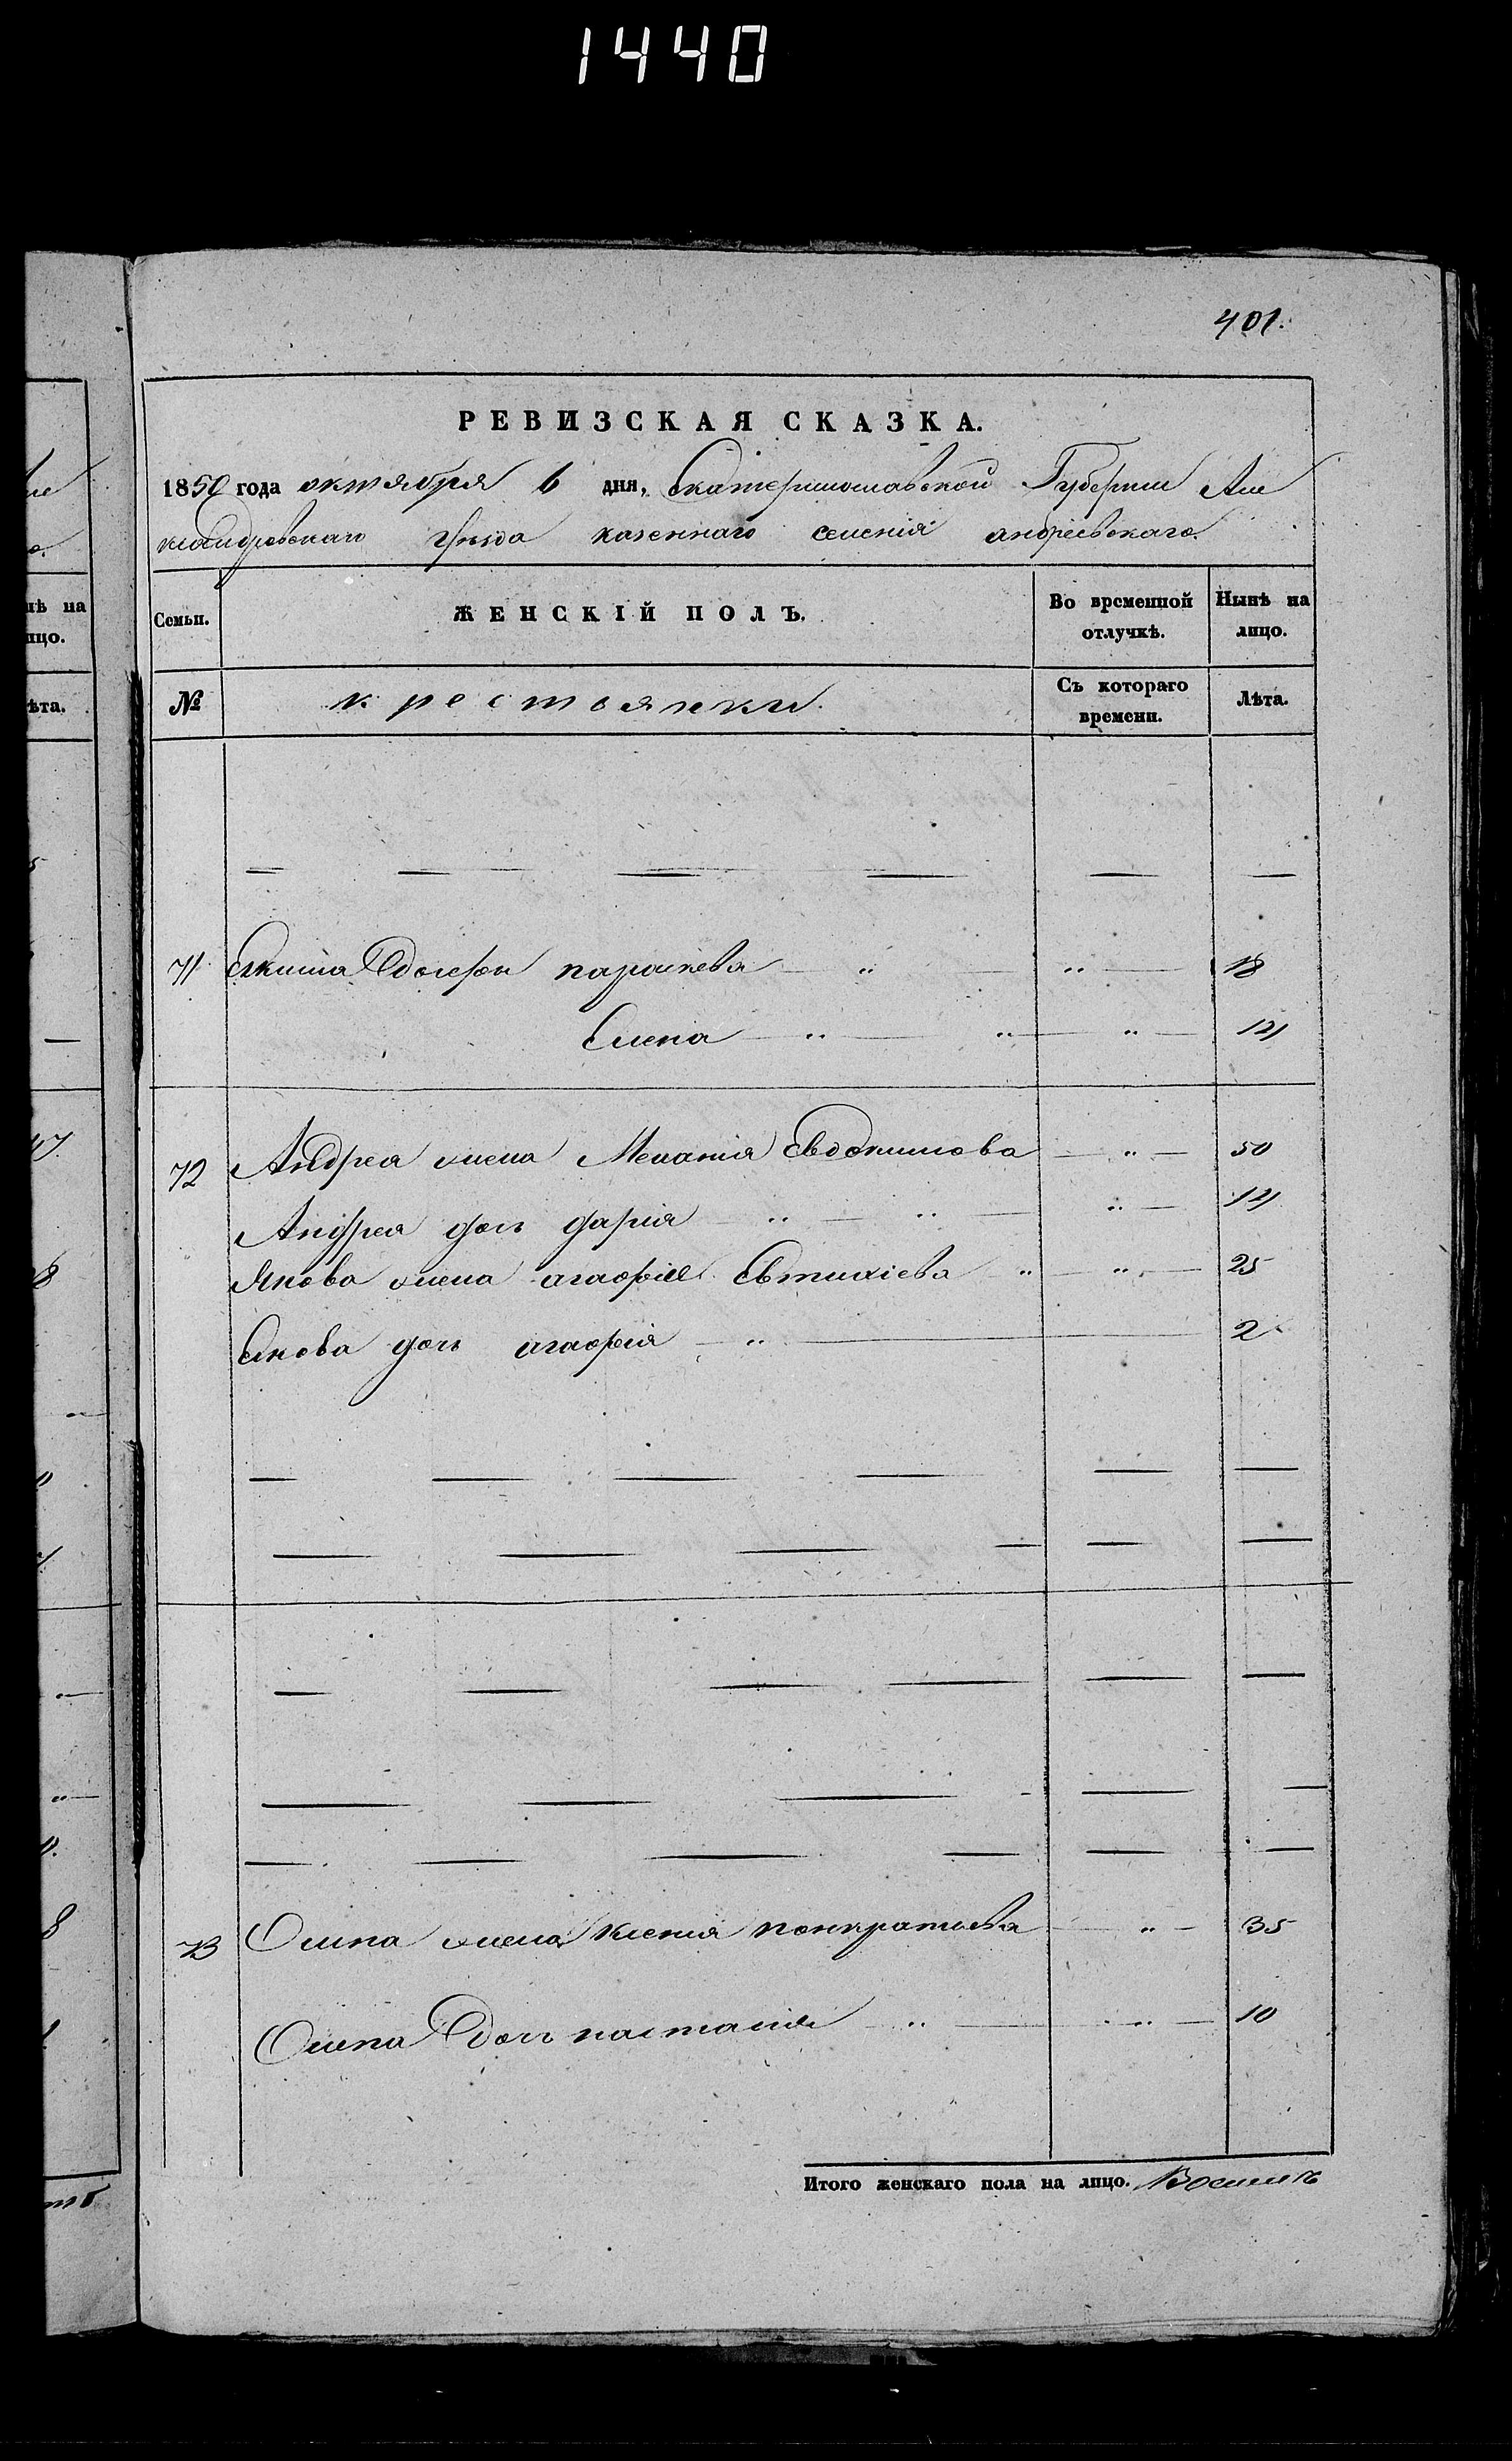 1440
401.
РЕВИЗСКАЯ СКАЗКА.
1850 года октября 6 дня, Екатеринославской Губернии Але
ксандровскаго уѣзда казеннаго селенія андреевскаго.
Семьи. ЖЕНСКІЙ ПОЛЪ. Во временной отлучкѣ. Нынѣ на лицо.
№ крестьянки. Съ котораго времени. Лѣта.
71 Екима дочери параскева — " " — 18
Елена — " — " — " — 14
72 Андрея жена Мелания Евдокимова — " — 50
Андрея доч дария — " — " — " — 14
Якова жена агафия Евтихіева " — " — 25
Якова доч агафия — " — 2
73 Осипа жена ксения понкратиева — " — 35
Осипа доч настасия — " — " — 10
Итого женскаго пола на лицо. Восемь